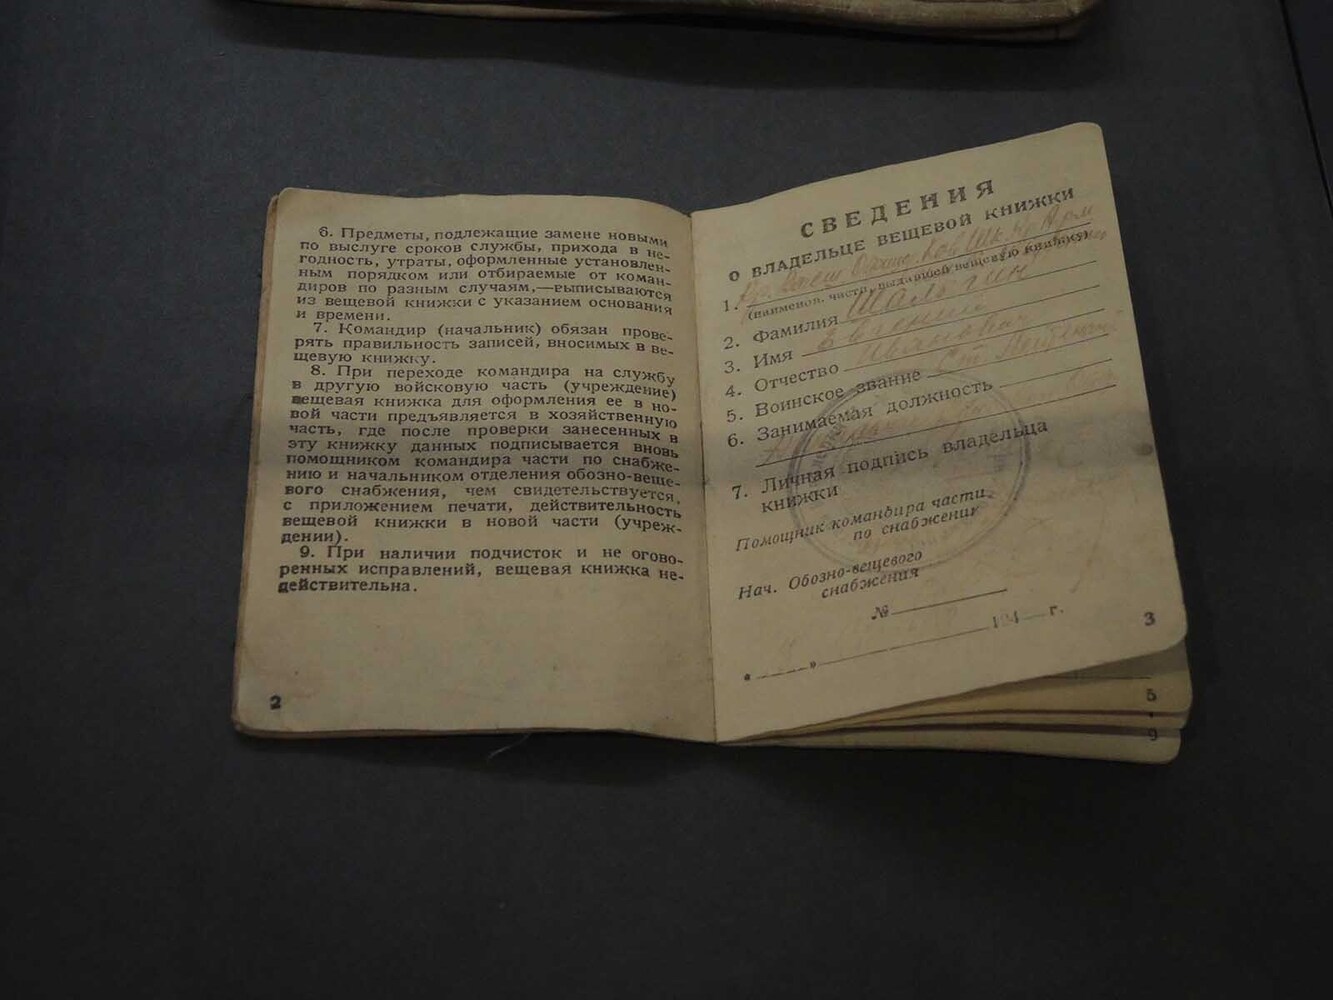 6. Предметы, подлежащие замене новыми
по выслуге сроков службы, прихода в не-
годность, утраты, оформленные установлен-
ным порядком или отбираемые от коман-
диров по разным случаям,—выписываются
из вещевой книжки с указанием основания
и времени.
7. Командир (начальник) обязан прове-
рять правильность записей, вносимых в ве-
щевую книжку.
8. При переходе командира на службу
в другую войсковую часть (учреждение)
вещевая книжка для оформления ее в но-
вой части предъявляется в хозяйственную
часть, где после проверки занесенных в
эту книжку данных подписывается вновь
помощником командира части по снабже-
нию и начальником отделения обозно-веще-
вого снабжения, чем свидетельствуется,
с приложением печати, действительность
вещевой книжки в новой части (учреж-
дении).
9. При наличии подчисток и не огово-
ренных исправлений, вещевая книжка не-
действительна.
2
СВЕДЕНИЯ
О ВЛАДЕЛЬЦЕ ВЕЩЕВОЙ КНИЖКИ
1.
(наименов. части, выдавшей вещевую книжку)
2. Фамилия Шалыгин
3. Имя Евгений
4. Отчество Иванович
5. Воинское звание Ст. Лейтенант
6. Занимаемая должность
7. Личная подпись владельца
книжки
Помощник командира части
по снабжению
Нач. Обозно-вещевого
снабжения
№
" " 194 г.
3
5
9